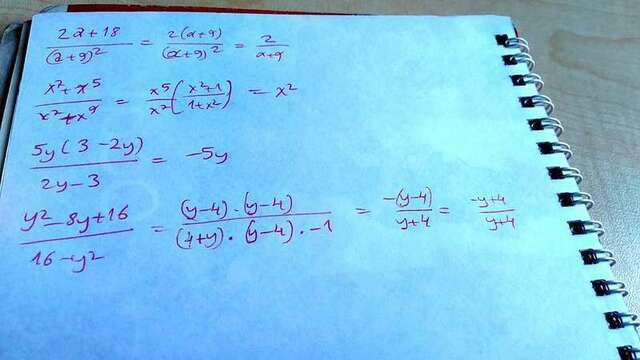 (2a+18)/(a+9)² = 2(a+9)/(a+9)² = 2/(a+9)
(x²+x⁵)/(x²+x⁹) = x⁵/x² ((x²+1)/(1+x²)) = x²
5y(3-2y)/(2y-3) = -5y
(y²-8y+16)/(16-y²) = (y-4)·(y-4)/((4+y)·(y-4)·-1) = -(y-4)/(y+4) = (-y+4)/(y+4)